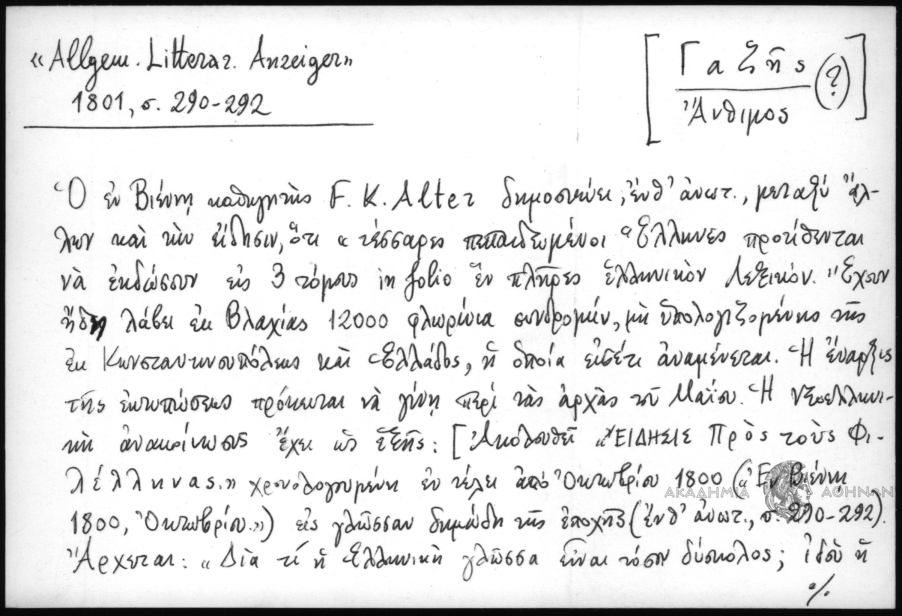 «Allgem. Litterar. Anzeiger»
1801, σ. 290-292
[Γαζῆς (?)]
Ἄνθιμος
Ὁ ἐν Βιέννῃ καθηγητὴς F. K. Alter δημοσιεύει, ἐνθ' ἀνωτ., μεταξὺ ἄλ-
λων καὶ τὴν εἴδησιν, ὅτι «τέσσαρες πεπαιδευμένοι Ἕλληνες προτίθενται
νὰ ἐκδώσουν εἰς 3 τόμους in folio ἓν πλῆρες ἑλληνικὸν Λεξικόν. Ἔχουν
ἤδη λάβει ἐκ Βλαχίας 12000 φλωρίνια συνδρομήν, μὴ ὑπολογιζομένης τῆς
ἐκ Κωνσταντινουπόλεως καὶ Ἑλλάδος, ἡ ὁποία εἰσέτι ἀναμένεται. Ἡ ἔναρξις
τῆς ἐκτυπώσεως πρόκειται νὰ γίνῃ περὶ τὰς ἀρχὰς τοῦ Μαΐου. Ἡ νεοελληνι-
κὴ ἀνακοίνωσις ἔχει ὡς ἑξῆς: [Ἀκολουθεῖ «ΕΙΔΗΣΙΣ Πρὸς τοὺς Φι-
λέλληνας.» χρονολογουμένη ἐν τέλει ἀπὸ Ὀκτωβρίου 1800 («Ἐν Βιέννῃ
1800, Ὀκτωβρίου.») εἰς γλῶσσαν δημώδη τῆς ἐποχῆς (ἐνθ' ἀνωτ., σ. 290-292).
Ἄρχεται: «Διὰ τί ἡ Ἑλληνικὴ γλῶσσα εἶναι τόσον δύσκολος; ἰδοὺ ἡ
%
ΑΚΑΔΗΜΙΑ ΑΘΗΝΩΝ